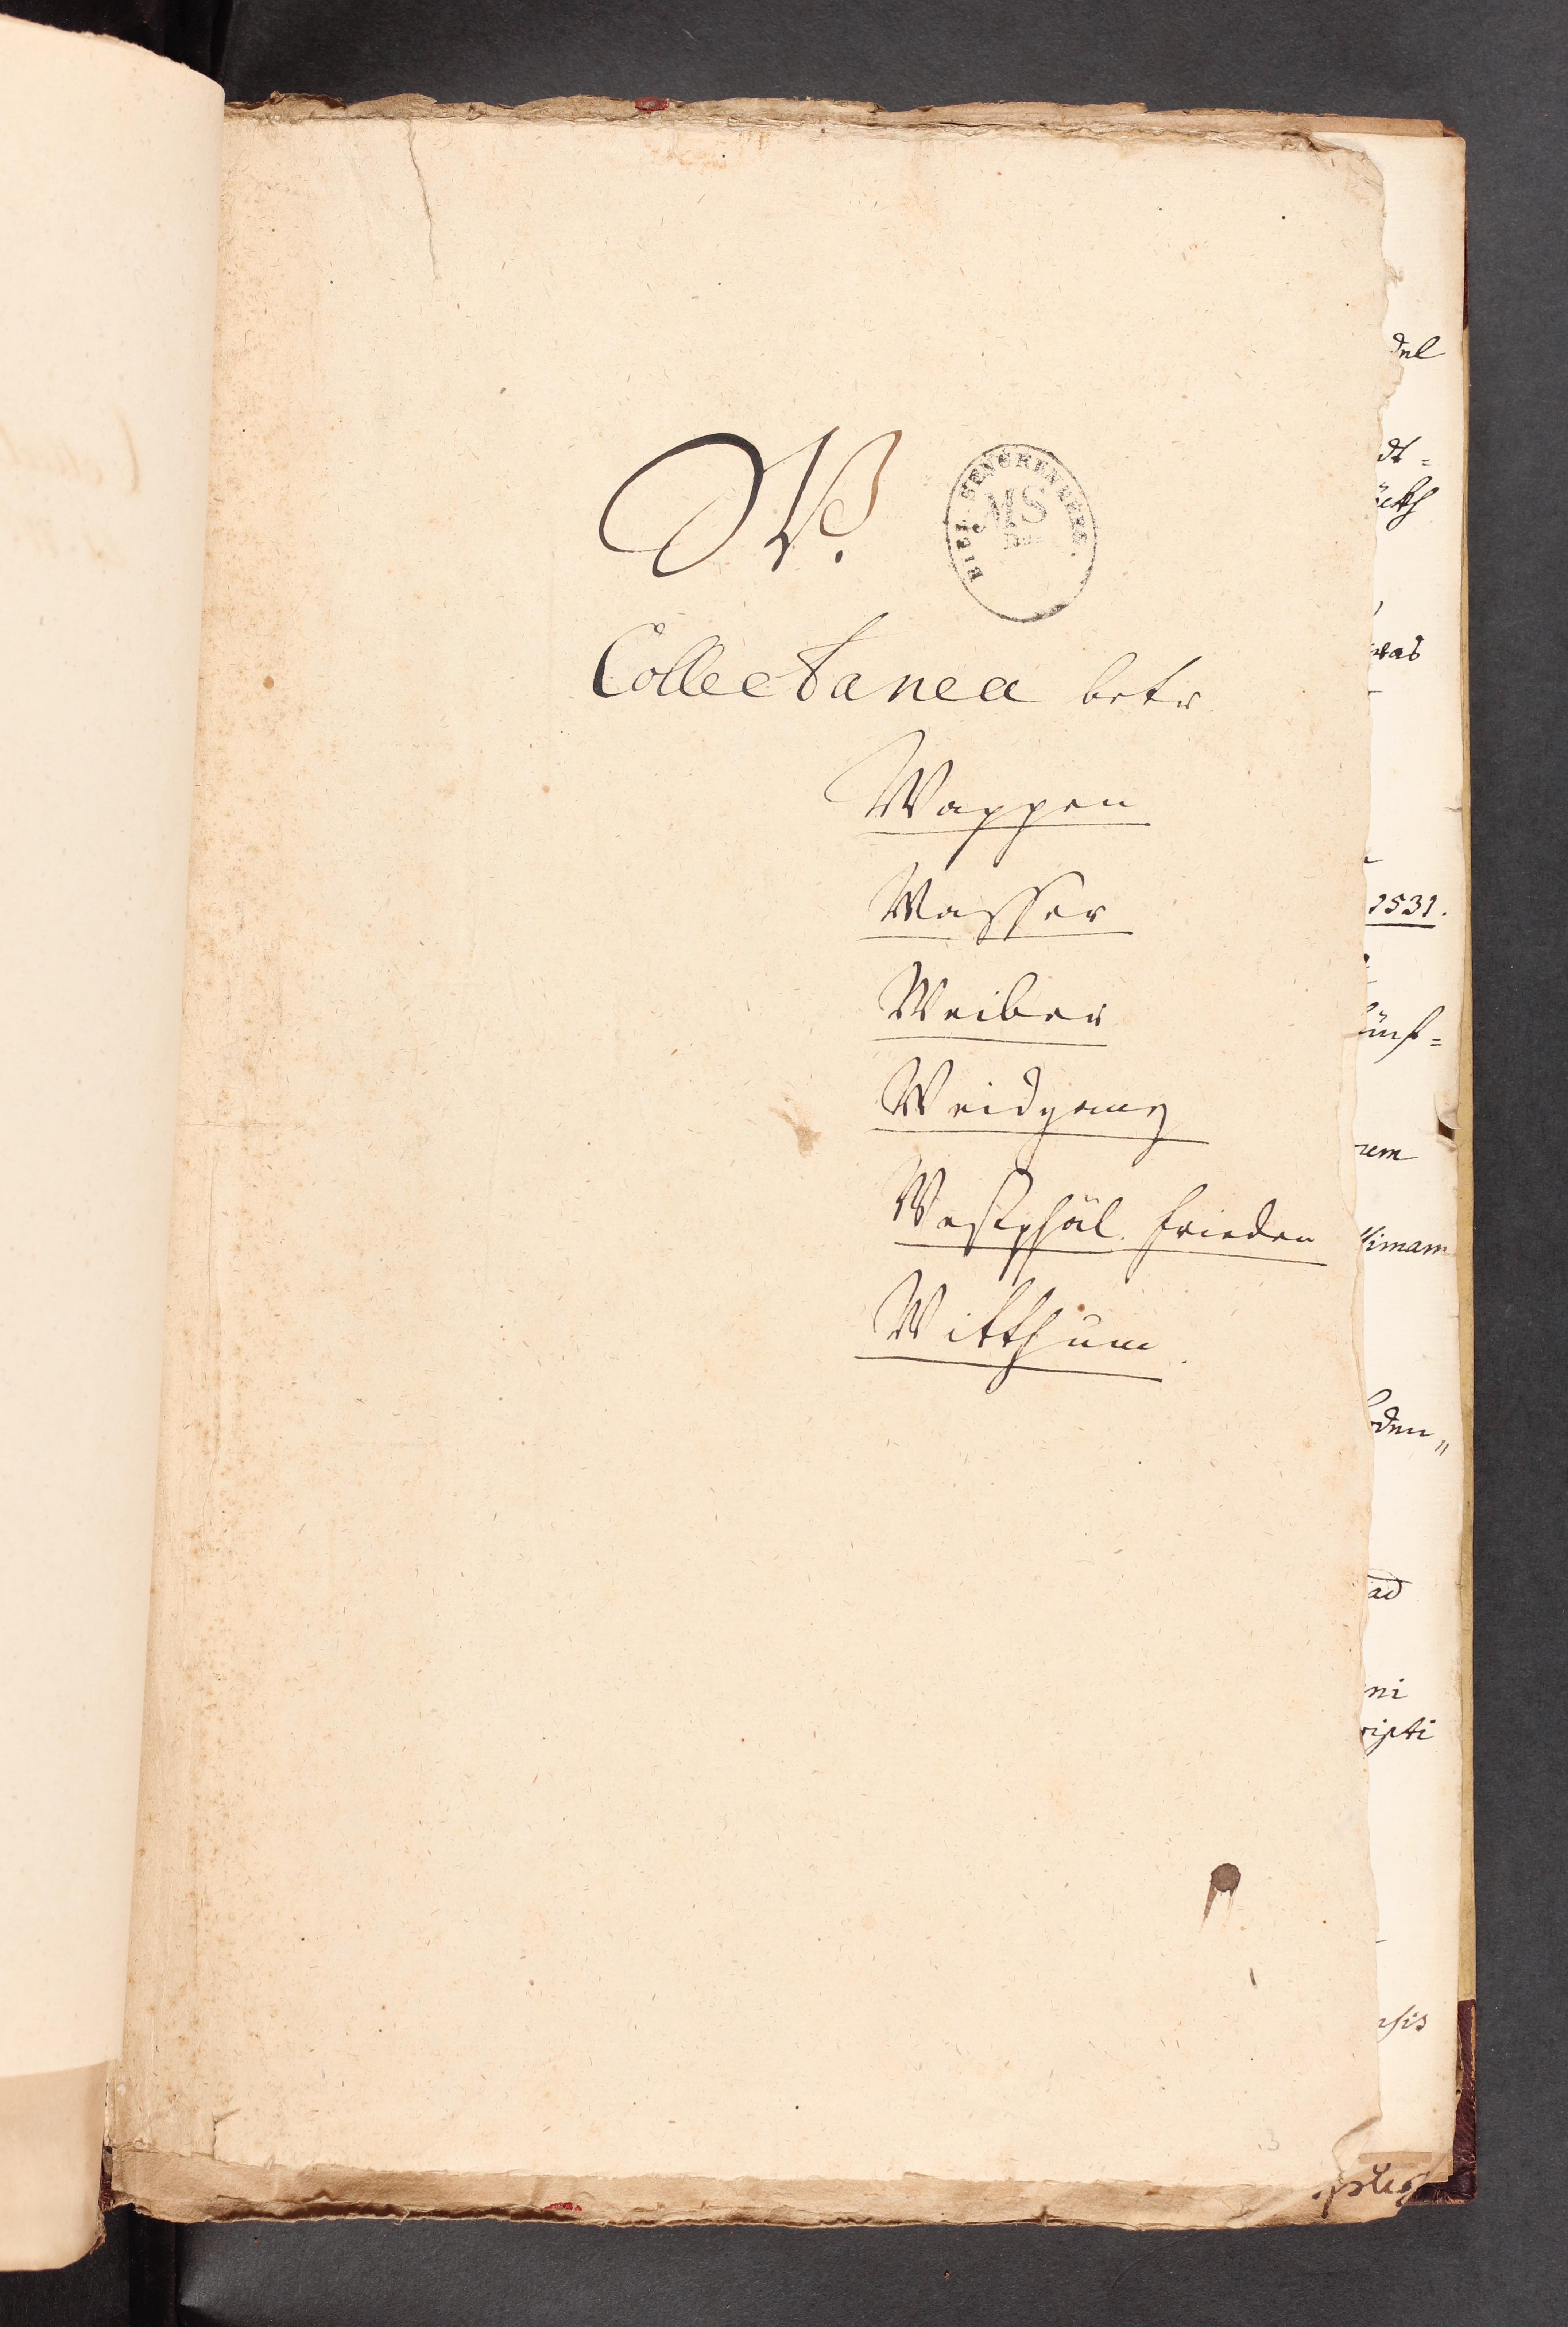 W.
BIBL. SENCKENBERG.
MS
Collectanea betr.
Wappen
Wasser
Weiber
Weidgang
Westphäl. Frieden
Witthum.
was
1531.
ad
3